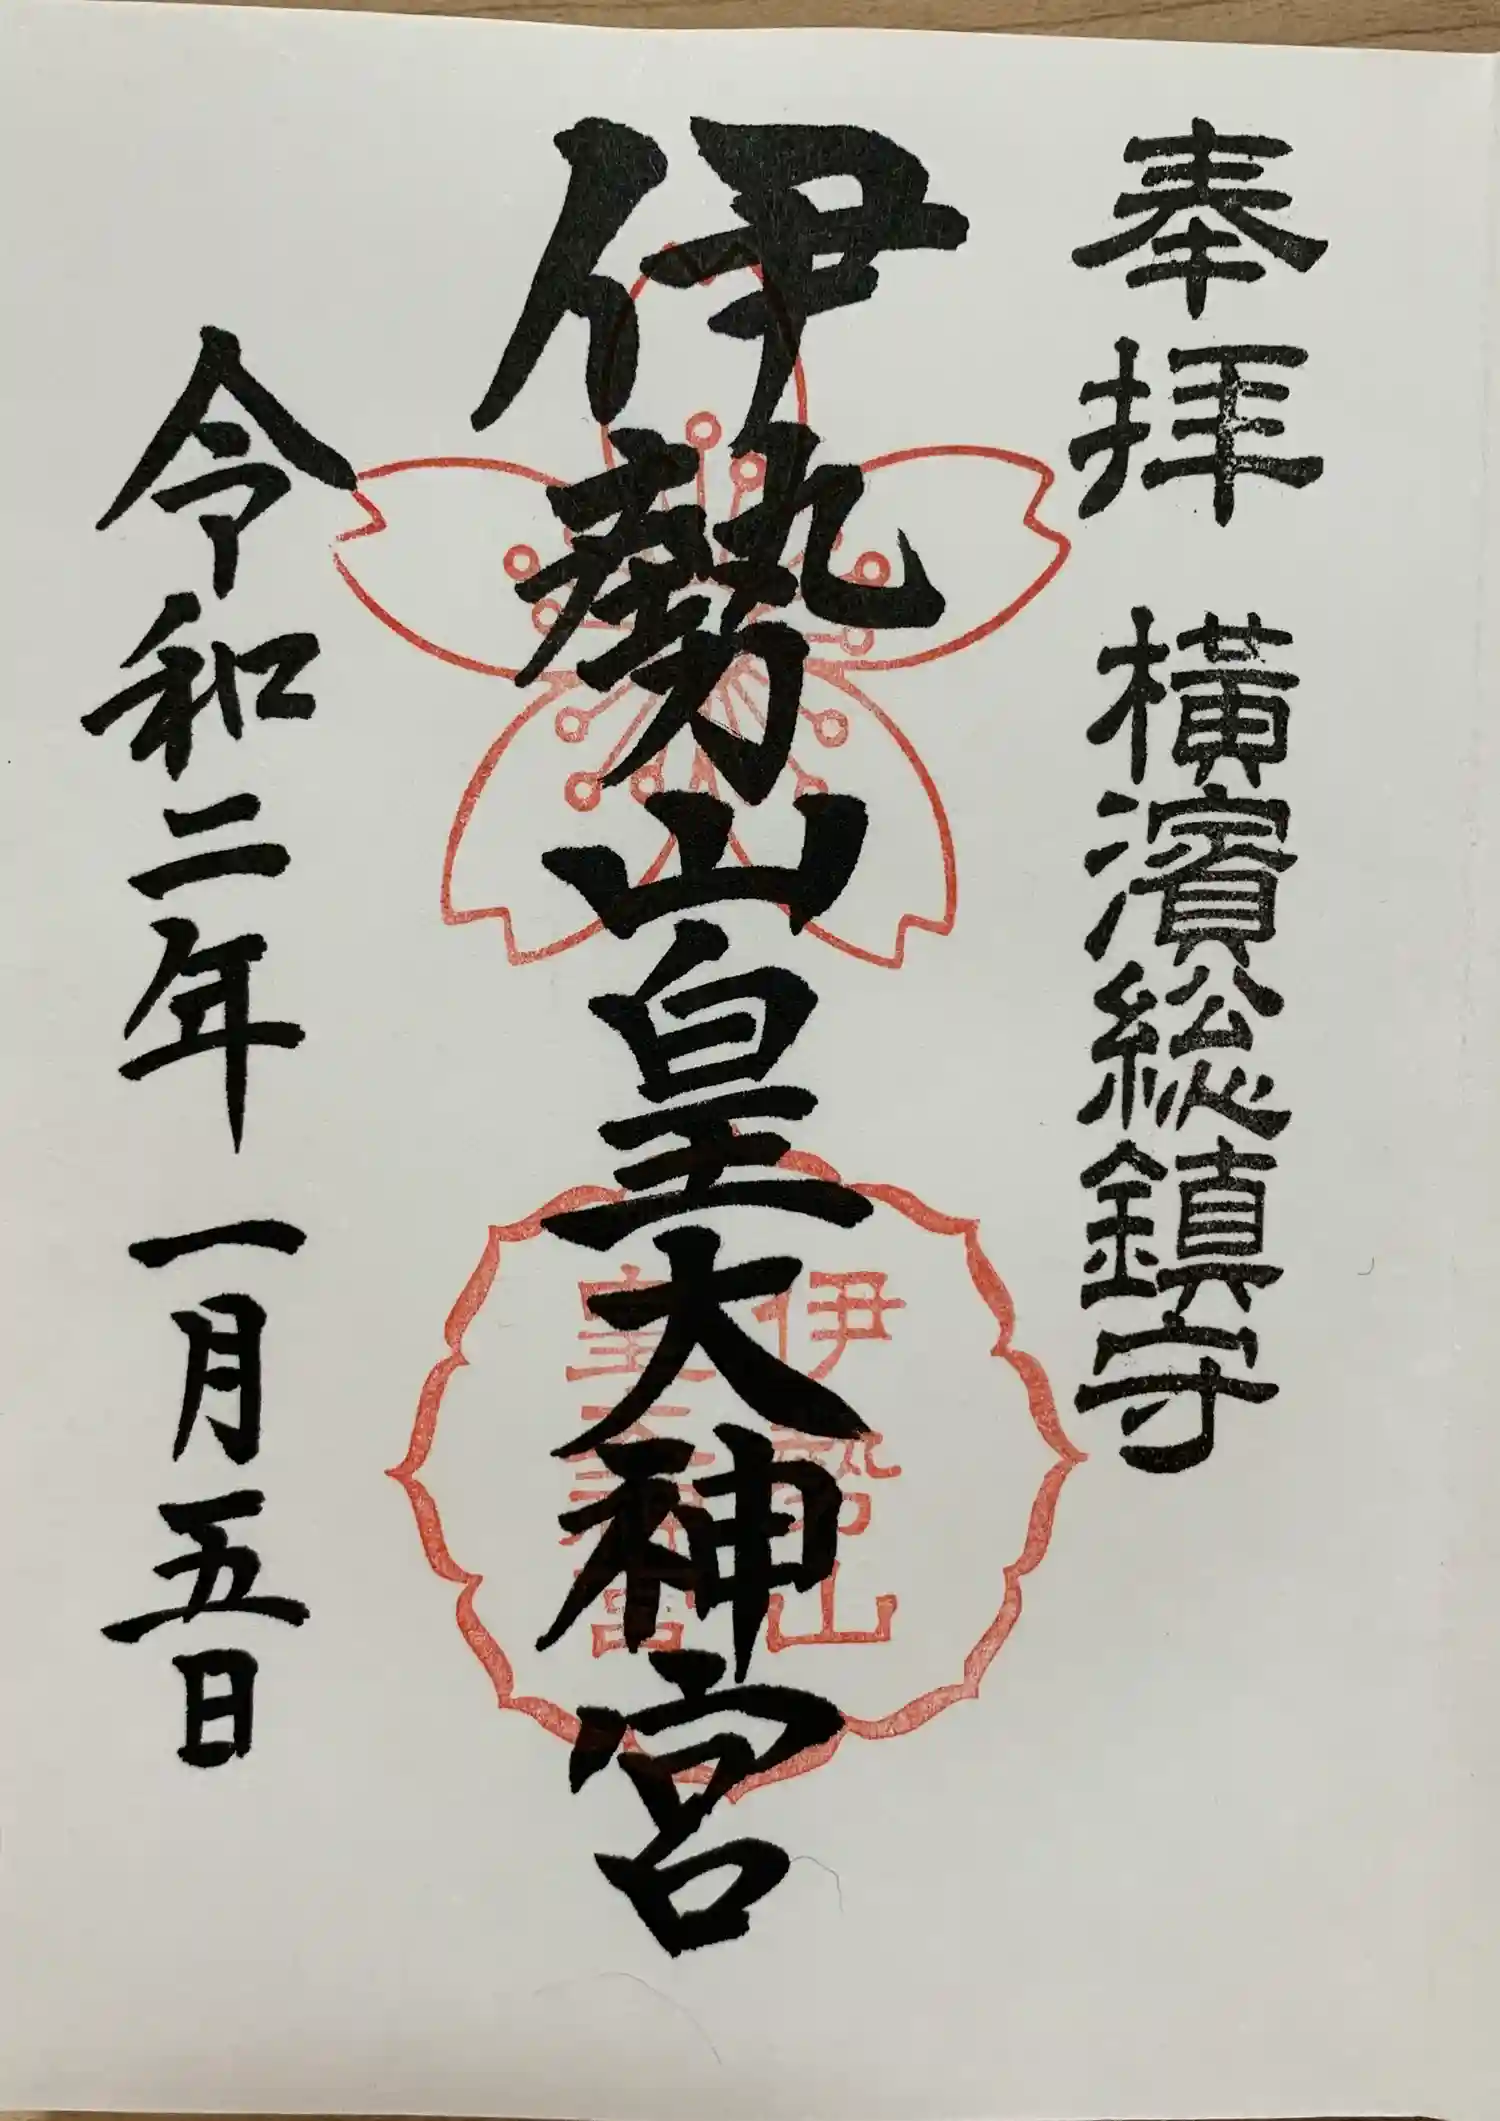 奉拝 横濱総鎮守
伊勢山皇大神宮
伊勢山
皇大神宮
令和二年 一月五日